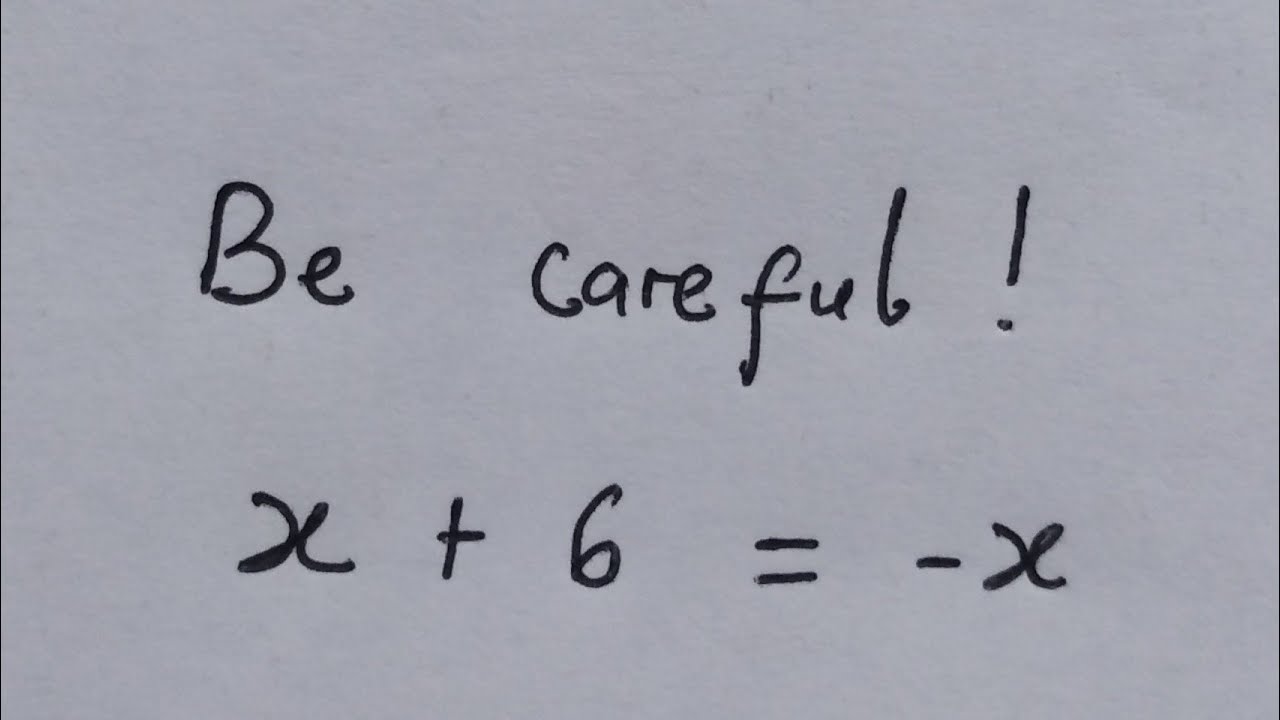 Be careful!
x + 6 = -x